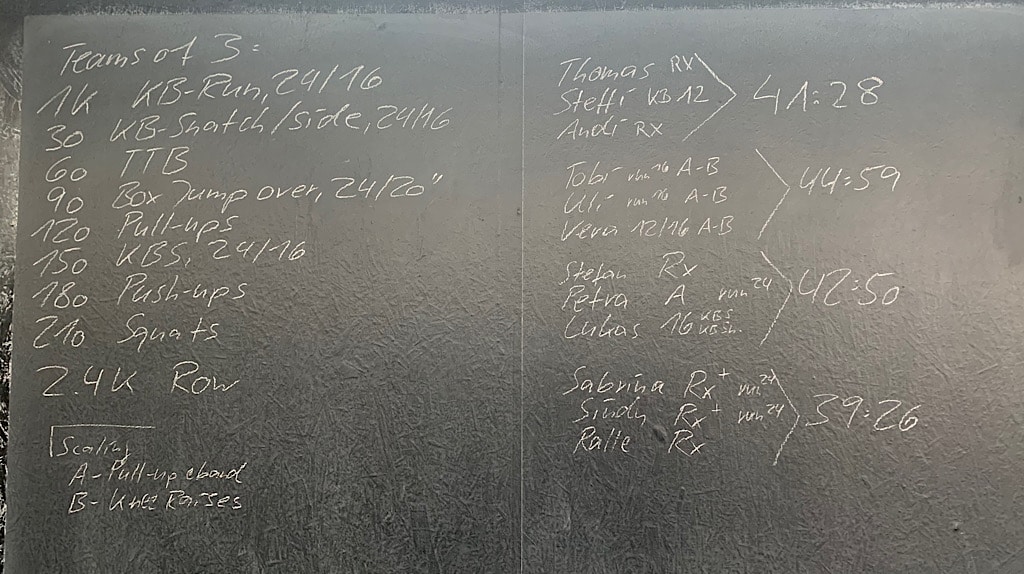 Teams of 3:
1K KB-Run, 24/16
30 KB-Snatch/side, 24/16
60 TTB
90 Box Jump over, 24/20"
120 Pull-ups
150 KBS, 24/16
180 Push-ups
210 Squats
2.4K Row
Scaling
A - Pull-up cband
B - Knee Raises
Thomas RX
Steffi KB 12
Andi RX
41:28
Tobi run 16 A-B
Uli run 16 A-B
Vera 12/16 A-B
44:59
Stefan Rx
Petra A run 24
Lukas 16 KBS KBSn.
42:50
Sabrina Rx+ run 24
Sindy Rx+ run 24
Ralle Rx
39:26